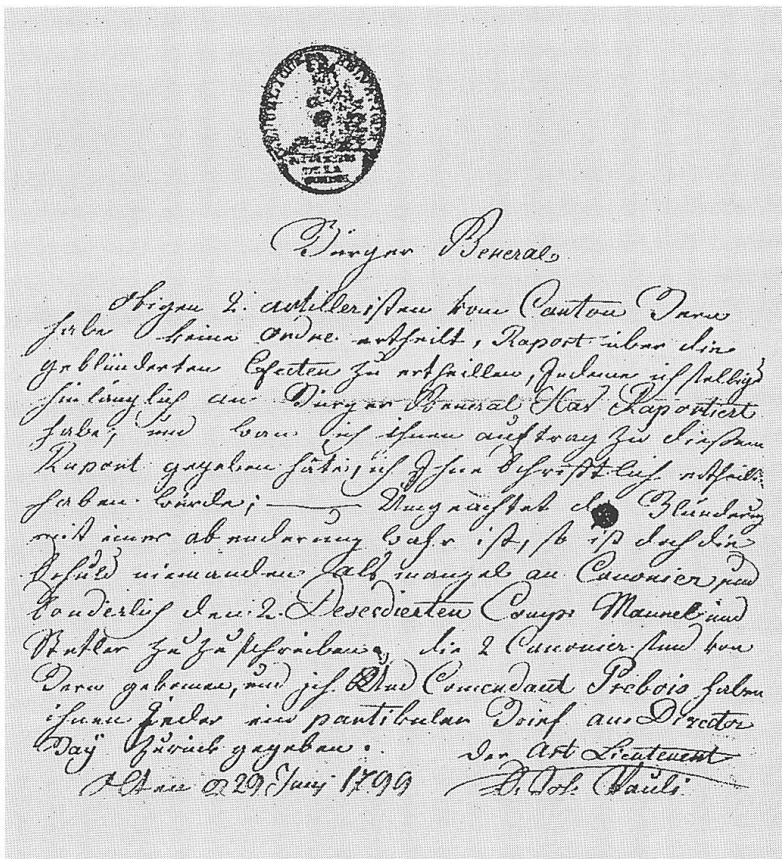 REPUBLIQUE HELVETIQUE
DE LA
Bürger General
obigen 2. artilleristen vom Canton Bern
habe keine ordre ertheilt, Raport über die
geblünderten Efecten zu ertheillen, Indeme ich selbige
hinlänglich an Bürger General Raportiert
habe, und wan ich ihnen auftrag zu diesem
Raport gegeben häte, ich Ihne schriftlich ertheilt
haben würde; — Ungeachtet die Blünderung
mit einer abenderung wahr ist, so ist doch die
Schuld niemanden als mangel an Canonier, und
sonderlich den 2. Deserdierten Comp. Manuel und
Stetler zu zu schreiben, die 2 Canonier sind von
Bern gekomen, und ich Und Comendant Prebois haben
ihnen Jeder ein partikular Brief an Director
Baÿ zurück gegeben.
Der Art Lieutenent
Olten 29 Junj 1799
Joh. Pauli